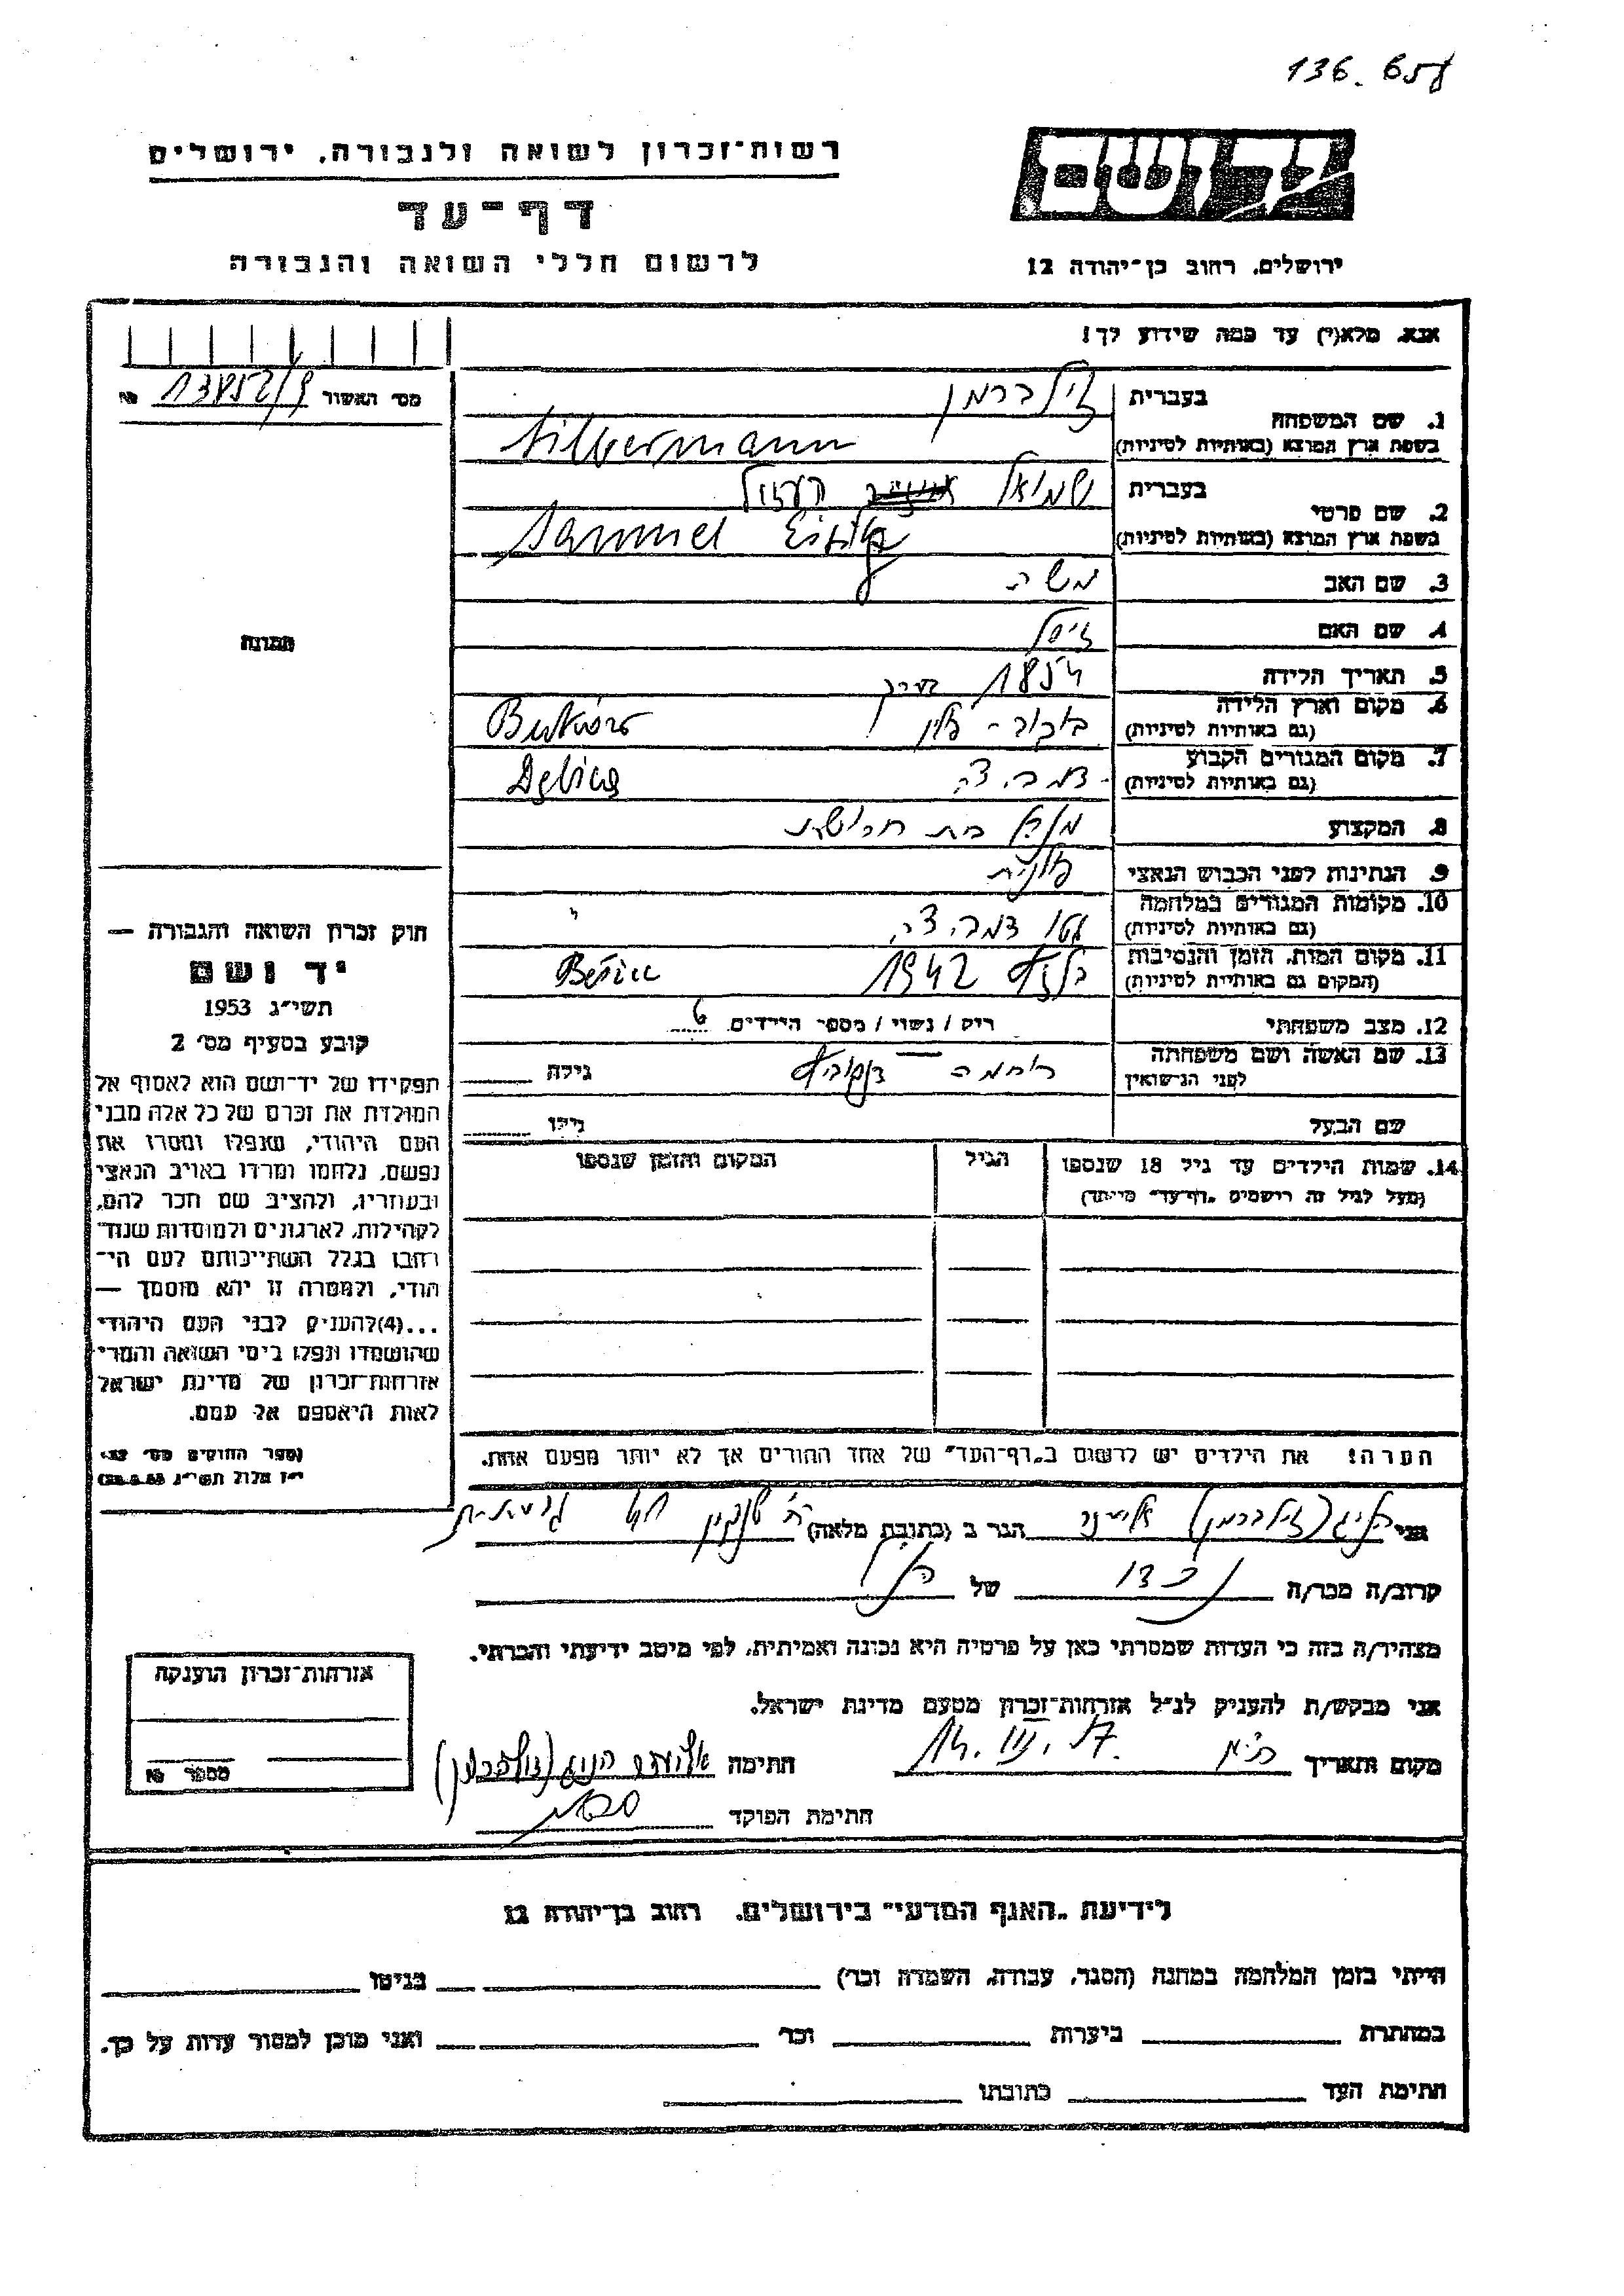 136.658
יד ושם
רשות־זכרון לשואה ולגבורה, ירושלים
דף־עד
ירושלים, רחוב בן־יהודה 12
לרשום חללי השואה והגבורה
אנא, מלא(י) עד כמה שידוע לך!
מס׳ האשור №
1. שם המשפחה
בעברית
זילברמן
בשפת ארץ המוצא (באותיות לטיניות)
Silbermann
2. שם פרטי
בעברית
שמואל
בשפת ארץ המוצא (באותיות לטיניות)
Samuel
3. שם האב
משה
4. שם האם
5. תאריך הלידה
1854 בערך
6. מקום וארץ הלידה
(גם באותיות לטיניות)
פולין
7. מקום המגורים הקבוע
(גם באותיות לטיניות)
דמביצה
Dębica
8. המקצוע
בית חרושת
9. הנתינות לפני הכבוש הנאצי
פולנית
10. מקומות המגורים במלחמה
(גם באותיות לטיניות)
גטו דמביצה
11. מקום המות, הזמן והנסיבות
(המקום גם באותיות לטיניות)
1942
12. מצב משפחתי
רוק / נשוי / מספר הילדים 6
13. שם האשה ושם משפחתה
לפני הנישואין
גילה
שם הבעל
גילו
14. שמות הילדים עד גיל 18 שנספו
(מעל לגיל זה רושמים „דף־עד״ מיוחד)
הגיל
המקום והזמן שנספו
הערה! את הילדים יש לרשום ב„דף־העד״ של אחד ההורים אך לא יותר מפעם אחת.
תמונה
חוק זכרון השואה והגבורה —
יד ושם
תשי״ג 1953
קובע בסעיף מס׳ 2
תפקידו של יד־ושם הוא לאסוף אל
המולדת את זכרם של כל אלה מבני
העם היהודי, שנפלו ומסרו את
נפשם, נלחמו ומרדו באויב הנאצי
ובעוזריו, ולהציב שם וזכר להם,
לקהילות, לארגונים ולמוסדות שנח־
רבו בגלל השתייכותם לעם הי־
הודי, ולמטרה זו יהא מוסמך —
...(4)להעניק לבני העם היהודי
שהושמדו ונפלו בימי השואה והמרי
אזרחות־זכרון של מדינת ישראל
לאות היאספם אל עמם.
(ספר החוקים מס׳ 132,
י״ז אלול תשי״ג 28.8.53)
אני (זילברמן) הגר ב (כתובת מלאה)
קרוב/ה מכר/ה נכדו של הנ״ל
מצהיר/ה בזה כי העדות שמסרתי כאן על פרטיה היא נכונה ואמיתית, לפי מיטב ידיעתי והכרתי.
אני מבקש/ת להעניק לנ״ל אזרחות־זכרון מטעם מדינת ישראל.
מקום ותאריך
חתימה
חתימת הפוקד
אזרחות־זכרון הוענקה
מספר №
לידיעת „האגף המדעי״ בירושלים, רחוב בן־יהודה 12
הייתי בזמן המלחמה במחנה (הסגר, עבודה, השמדה וכו׳) בגיטו
במחתרת ביערות וכו׳ ואני מוכן למסור עדות על כך.
חתימת העד כתובתו